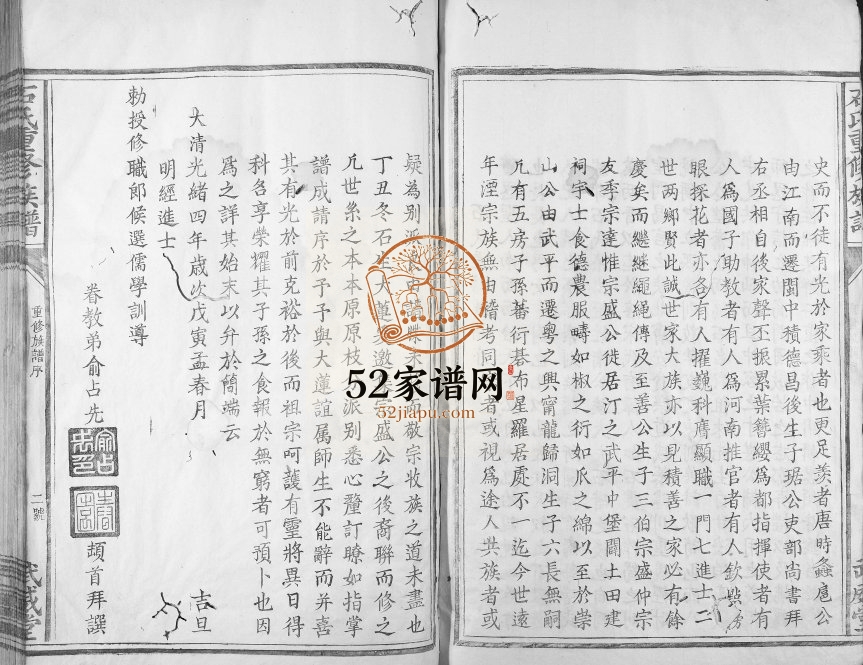 石氏重修族譜
武威堂
史而不徒有光於家乘者也更足羨者唐時蠡扈公
由江南而遷閩中積德昌後生子琚公吏部尚書拜
右丞相自後家聲丕振累葉簪纓為都指揮使者有
人為國子助教者有人為河南推官者有人欽點
眼探花者亦各有人擢巍科膺顯職一門七進士二
世两鄉賢此誠世家大族亦以見積善之家必有餘
慶矣而繼繼繩繩傳及至善公生子三伯宗盛仲宗
友季宗達惟宗盛公徙居汀之武平中堡闢土田建
祠宇士食德農服疇如椒之衍如瓜之綿以至於崇
山公由武平而遷粵之興甯龍歸洞生子六長無嗣
凡有五房子孫蕃衍棊布星羅居處不一迄今世遠
年湮宗族無由稽考同者或視為途人共族者或
疑為別派敬宗牧族之道未盡也
丁丑冬石大蓮邀宗盛公之後裔聯而修之
凡世系之本本原原枝派别悉心釐訂瞭如指掌
譜成請序於予予與大蓮誼属師生不能辭而并喜
其有光於前克裕於後而祖宗呵護有靈將異日得
科名享榮耀其子孫之食報於無窮者可預卜也因
為之詳其始末以弁於簡端云
大清光緒四年歲次戊寅孟春月 吉旦
明經進士
勅授修職郎候選儒學訓導
眷教弟俞占先 頡首拜譔
石氏重修族譜
重修族譜序
二號
武威堂
52家谱网
52jiapu.com